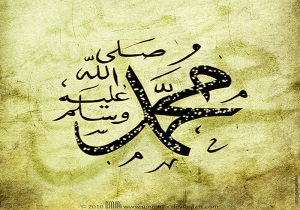 محمد
صلى
الله
عليه
وسلم
© 2010